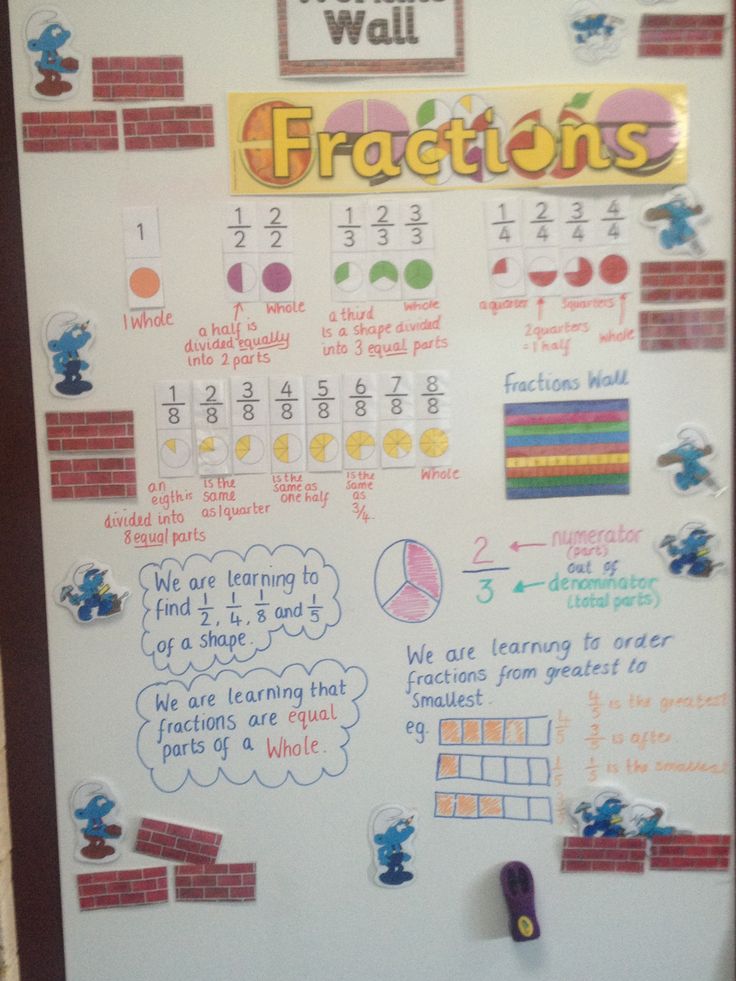 Wall
Fractions
1
1/2 2/2
1/3 2/3 3/3
1/4 2/4 3/4 4/4
1 Whole
Whole
a half is
divided equally
into 2 parts
a third
Whole
Is a shape divided
into 3 equal parts
a quarter
3quarters
2 quarters
= 1 half
whole
1/8 2/8 3/8 4/8 5/8 6/8 7/8 8/8
Fractions Wall
an
eigth is
divided into
8 equal parts
is the
same
as 1 quarter
is the
same as
one half
is the
same
as
3/4.
Whole
We are learning to
find 1/2, 1/4, 1/8 and 1/5
of a shape.
2/3
numerator
(part)
out of
denominator
(total parts)
We are learning that
fractions are equal
parts of a Whole.
We are learning to order
fractions from greatest to
Smallest.
eg.
4/5
1/5
4/5 is the greatest
3/5 is after
1/5 is the smallest